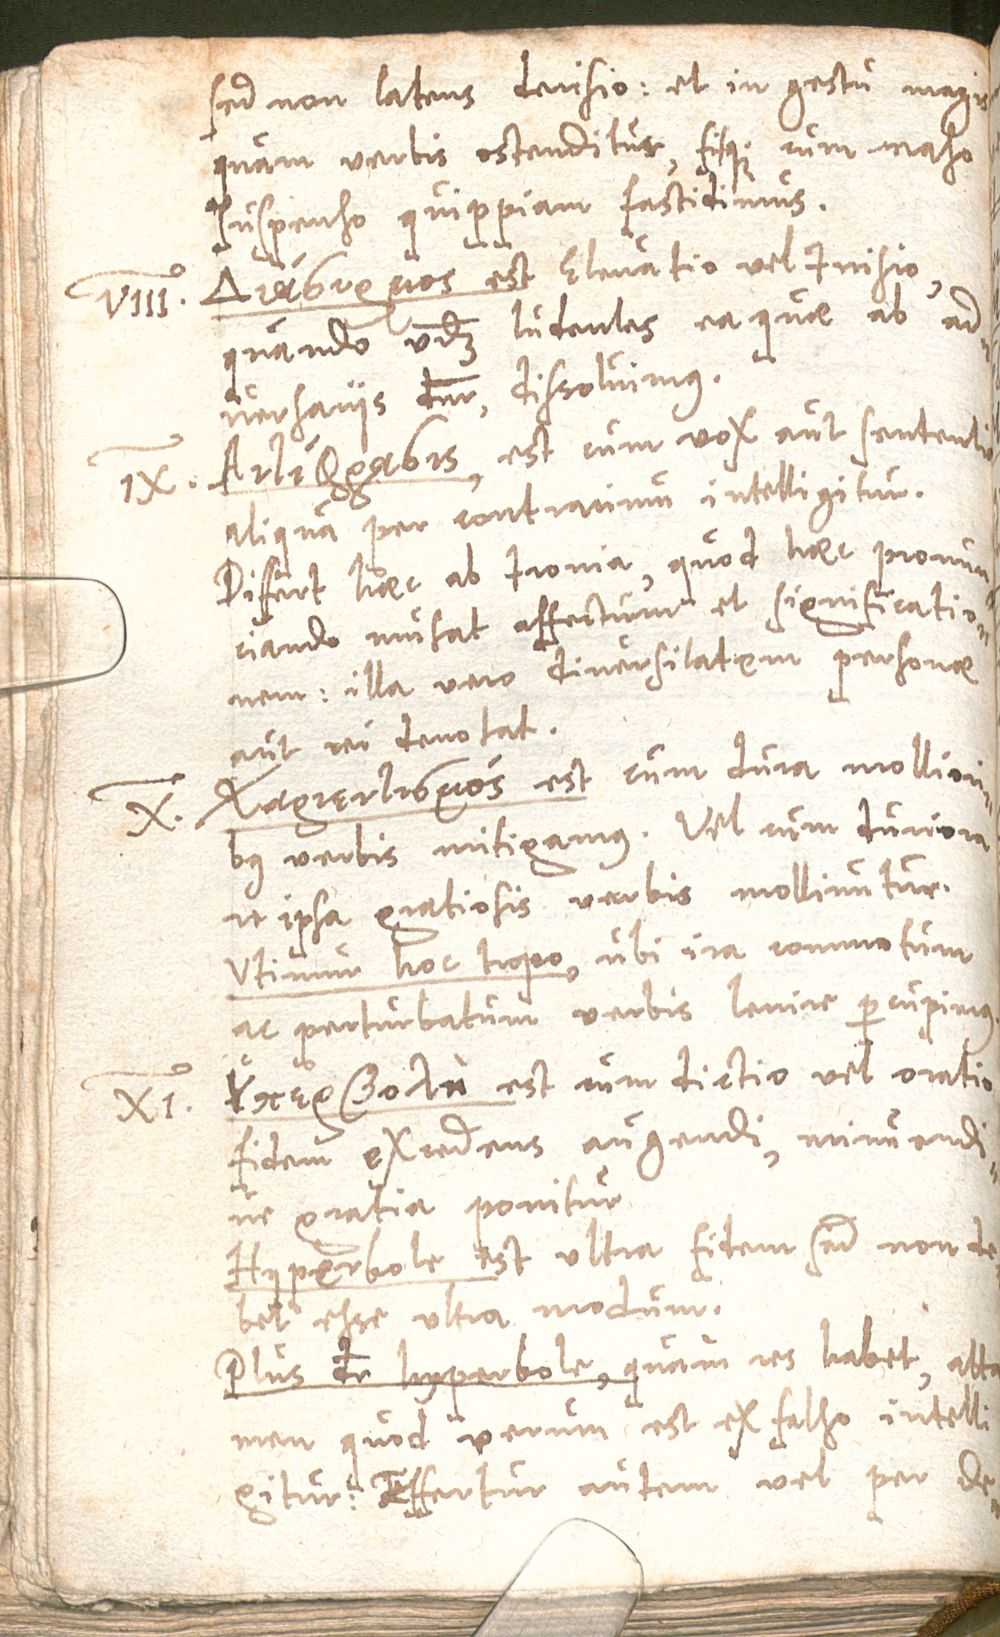 sed non latens derisio: et in gestu magis
quam verbis ostenditur, fitq3 cum naso
suspenso quippiam fastidimus.
VIII. Διασυρμος est Elevatio vel Irrisio,
quando ludentes ea quae ab ad=
versarijs dnr, dissolvimq.
IX. Ἀντίφρασις, est cum vox aut sententia
aliqua per contrarium intelligitur.
Differt haec ab Ironia, quod haec pronun
ciando mutat affectum et significatio=
nem: illa vero diversitatem personae
aut rei denotat.
X. Χαριεντισμός est cum dura mollior=
bq verbis mitigamq. Vel cum duriora
re ipsa gratiosis verbis molliuntur.
Vtimur hoc tropo, ubi ira commotum
ac perturbatum verbis lenire cupimq.
XI. Ὑπερβολὴ est cum dictio vel oratio
fidem excedens augendi, minuendi=
ve gratia ponitur
Hyperbole est ultra fidem sed non de
bet esse ultra modum.
Plus dr hyperbole, quam res habet, atta
men quod verum est ex falso intelli
gitur: Effertur autem vel per de=